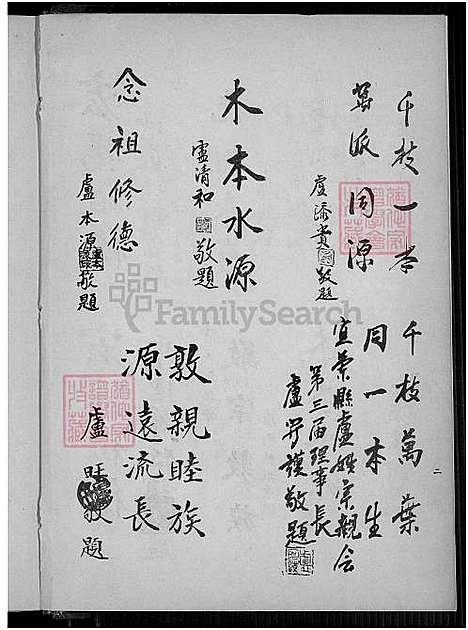 千枝一本
萬派同源
盧添貴敬題
千枝萬葉
同一本生
宜蘭縣盧姓宗親會
第三届理事長
盧 謹敬題
木本水源
盧清和敬題
敦親睦族
源遠流長
盧 敬題
念祖修德
盧本源敬題
二
FamilySearch